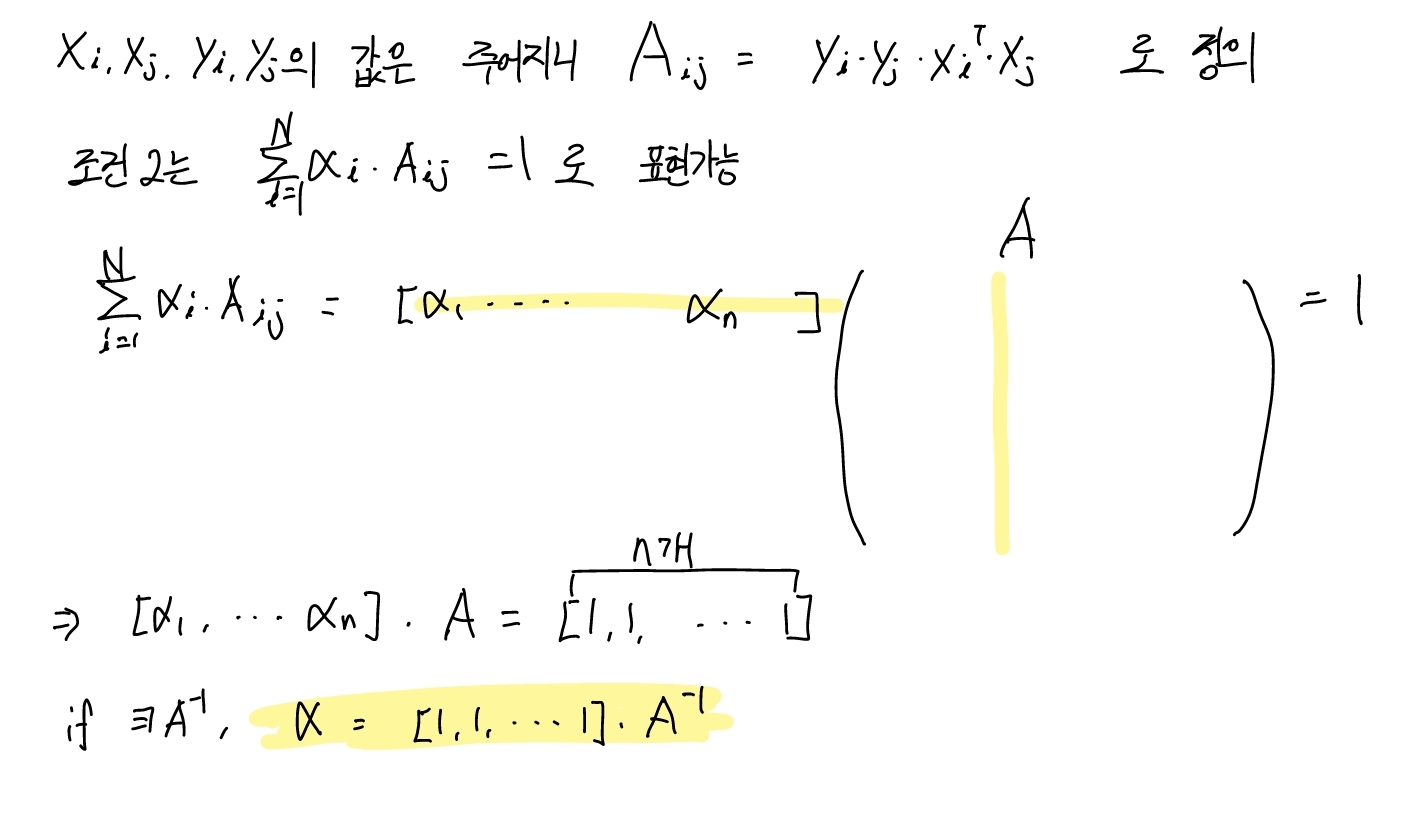 Xi, Xj, Yi, Yj의 값은 주어지니 Aij = Yi·Yj·Xiᵀ·Xj 로 정의
조건 2는 N Σ i=1 αi · Aij = 1 로 표현가능
A
N Σ i=1 αi · Aij = [α1 ···· αn ] ( ) = 1
n개
⇒ [α1, ··· αn] · A = [1, 1, ··· 1]
if ∃A⁻¹, α = [1, 1, ··· 1] · A⁻¹